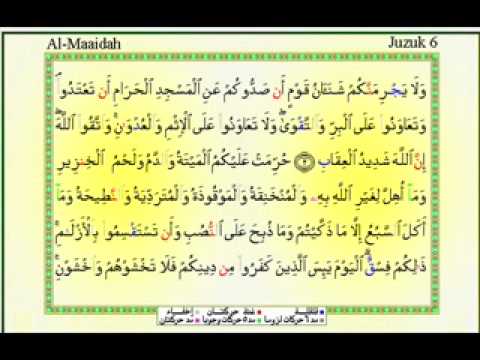 Al-Maaidah Juzuk 6
وَلَا يَجْرِمَنَّكُمْ شَنَـَٔانُ قَوْمٍ أَن صَدُّوكُمْ عَنِ ٱلْمَسْجِدِ ٱلْحَرَامِ أَن تَعْتَدُوا۟ ۘ
وَتَعَاوَنُوا۟ عَلَى ٱلْبِرِّ وَٱلتَّقْوَىٰ ۖ وَلَا تَعَاوَنُوا۟ عَلَى ٱلْإِثْمِ وَٱلْعُدْوَٰنِ ۚ وَٱتَّقُوا۟ ٱللَّهَ ۖ
إِنَّ ٱللَّهَ شَدِيدُ ٱلْعِقَابِ ۝٢ حُرِّمَتْ عَلَيْكُمُ ٱلْمَيْتَةُ وَٱلدَّمُ وَلَحْمُ ٱلْخِنزِيرِ
وَمَآ أُهِلَّ لِغَيْرِ ٱللَّهِ بِهِۦ وَٱلْمُنْخَنِقَةُ وَٱلْمَوْقُوذَةُ وَٱلْمُتَرَدِّيَةُ وَٱلنَّطِيحَةُ وَمَآ
أَكَلَ ٱلسَّبُعُ إِلَّا مَا ذَكَّيْتُمْ وَمَا ذُبِحَ عَلَى ٱلنُّصُبِ وَأَن تَسْتَقْسِمُوا۟ بِٱلْأَزْلَٰمِ ۚ
ذَٰلِكُمْ فِسْقٌ ۗ ٱلْيَوْمَ يَئِسَ ٱلَّذِينَ كَفَرُوا۟ مِن دِينِكُمْ فَلَا تَخْشَوْهُمْ وَٱخْشَوْنِ ۚ
قلقلة غنة حركتان إخفاء
مد ٦ حركات لزوما مد ٥ حركات وجوبا مد حركتان